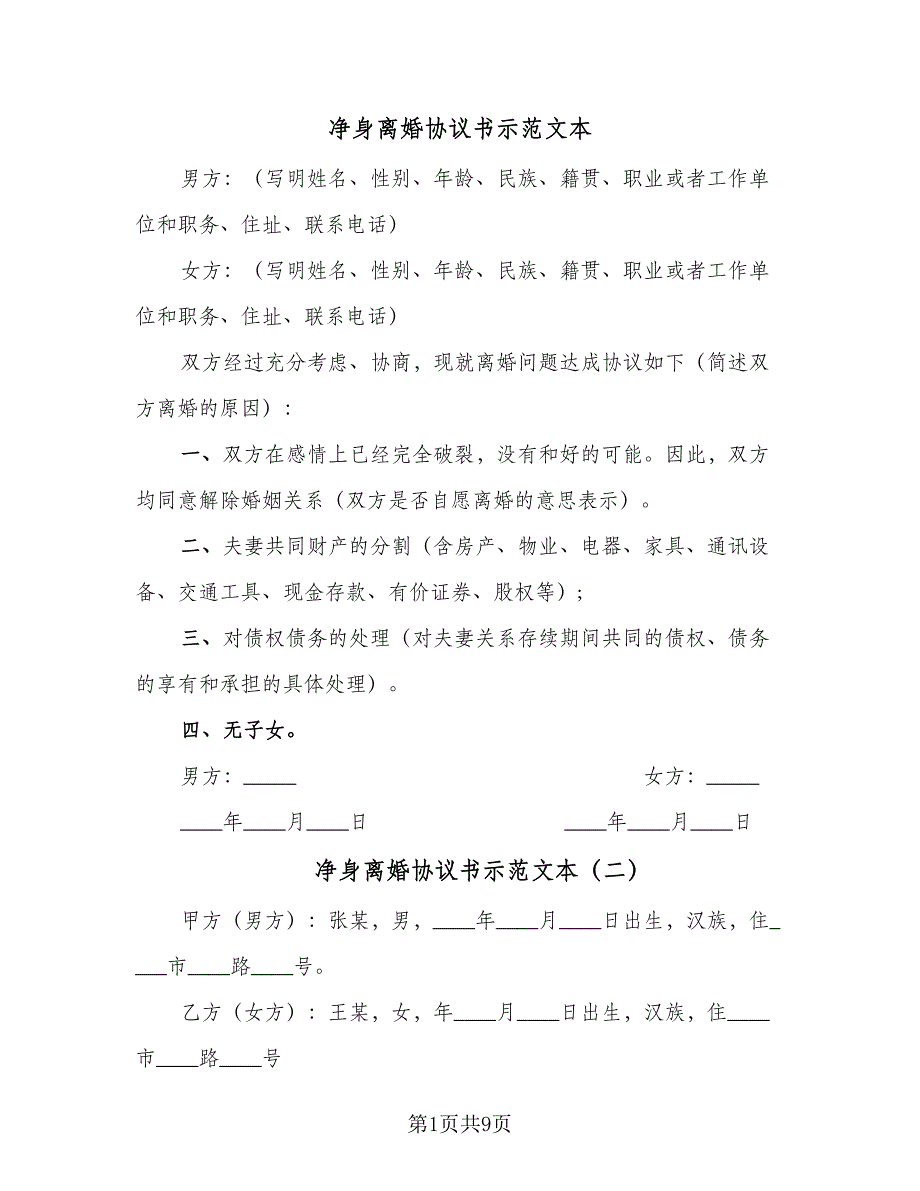 净身离婚协议书示范文本
男方：（写明姓名、性别、年龄、民族、籍贯、职业或者工作单
位和职务、住址、联系电话）
女方：（写明姓名、性别、年龄、民族、籍贯、职业或者工作单
位和职务、住址、联系电话）
双方经过充分考虑、协商，现就离婚问题达成协议如下（简述双
方离婚的原因）：
一、双方在感情上已经完全破裂，没有和好的可能。因此，双方
均同意解除婚姻关系（双方是否自愿离婚的意思表示）。
二、夫妻共同财产的分割（含房产、物业、电器、家具、通讯设
备、交通工具、现金存款、有价证券、股权等）；
三、对债权债务的处理（对夫妻关系存续期间共同的债权、债务
的享有和承担的具体处理）。
四、无子女。
男方：_____ 女方：_____
____年____月____日 ____年____月____日
净身离婚协议书示范文本（二）
甲方（男方）：张某，男，____年____月____日出生，汉族，住_
___市____路____号。
乙方（女方）：王某，女，年____月____日出生，汉族，住____
市____路____号
第1页共9页